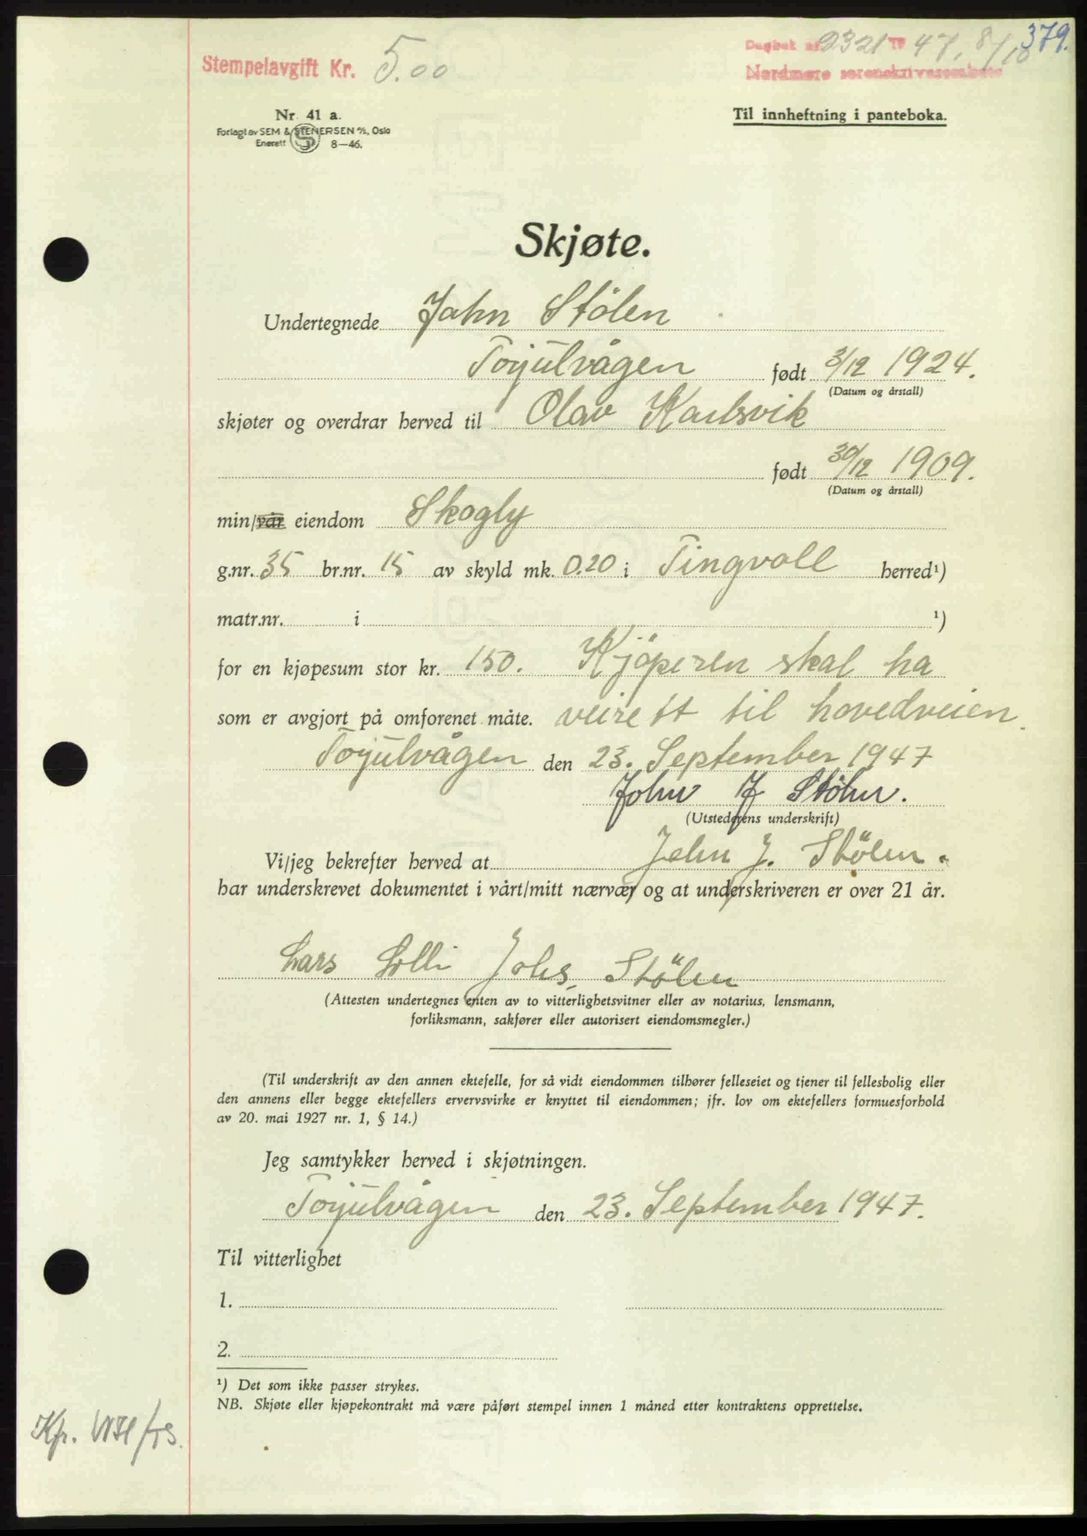 Stempelavgift Kr. 5.00
Dagbok nr. 2321 19 47, 8/10 379.
Nordmøre sorenskriverembete
Nr. 41 a.
Forlagt av SEM & STENERSEN A/S, Oslo
Enerett 8—46.
Til innheftning i panteboka.
Skjøte.
Undertegnede John Stölen
Torjulvågen født 3/12 1924.
(Datum og årstall)
skjøter og overdrar herved til Olav Karlsvik
født 30/12 1909.
(Datum og årstall)
min/vår eiendom Skogly
g.nr. 35 br.nr. 15 av skyld mk. 0.20 i Tingvoll herred¹)
matr.nr. i ¹)
for en kjøpesum stor kr. 150. Kjöperen skal ha
som er avgjort på omforenet måte. veirett til hovedveien.
Torjulvågen den 23. September 1947
John J Stölen.
(Utstederens underskrift)
Vi/jeg bekrefter herved at John J. Stölen.
har underskrevet dokumentet i vårt/mitt nærvær og at underskriveren er over 21 år.
Lars Lilli Johs. Stölen
(Attesten undertegnes enten av to vitterlighetsvitner eller av notarius, lensmann,
forliksmann, sakfører eller autorisert eiendomsmegler.)
(Til underskrift av den annen ektefelle, for så vidt eiendommen tilhører felleseiet og tjener til fellesbolig eller
den annens eller begge ektefellers ervervsvirke er knyttet til eiendommen; jfr. lov om ektefellers formuesforhold
av 20. mai 1927 nr. 1, § 14.)
Jeg samtykker herved i skjøtningen.
Torjulvågen den 23. September 1947.
Til vitterlighet
1.
2.
¹) Det som ikke passer strykes.
NB. Skjøte eller kjøpekontrakt må være påført stempel innen 1 måned etter kontraktens opprettelse.
Kp.